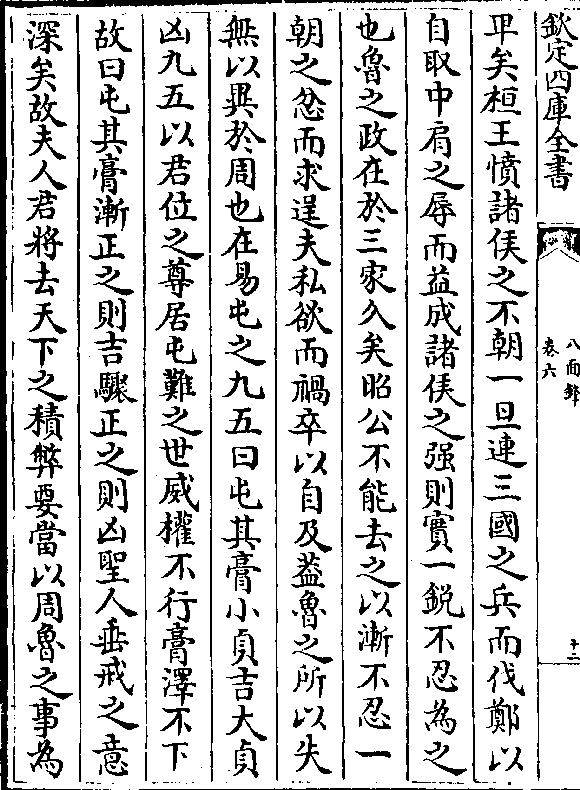 欽定四庫全書
八面鋒
卷六
十二
卑矣桓王憤諸侯之不朝一旦連三國之兵而伐鄭以
自取中肩之辱而益成諸侯之强則實一鋭不忍為之
也魯之政在於三家久矣昭公不能去之以漸不忍一
朝之忿而求逞夫私欲而禍卒以自及葢魯之所以失
無以異於周也在易屯之九五曰屯其膏小貞吉大貞
凶九五以君位之尊居屯難之世威權不行膏澤不下
故曰屯其膏漸正之則吉驟正之則凶聖人垂戒之意
深矣故夫人君將去天下之積弊要當以周魯之事為